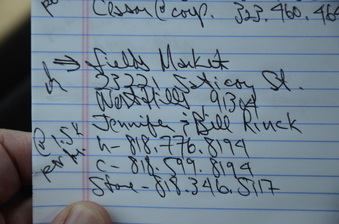 Cesar @ coup. 323.460.464
⇒ Fields Market
23221 Saticoy St.
West Hills 91304
Jennifer & Bill Rinck
h- 818.776.8194
c- 818.599.8194
Store- 818.346.5117